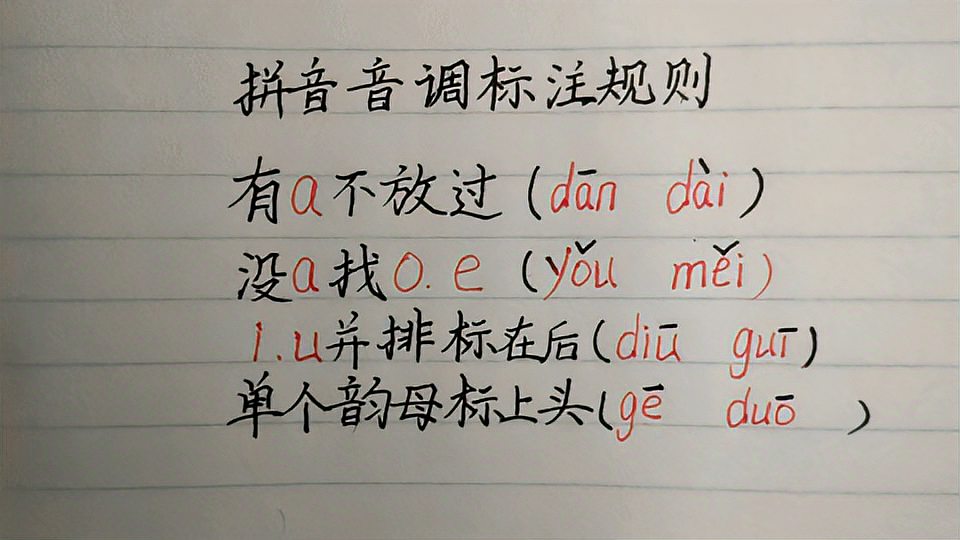 拼音音调标注规则
有a不放过(dān dài)
没a找o.e(yǒu měi)
i.u并排标在后(diū guī)
单个韵母标上头(gē duō)